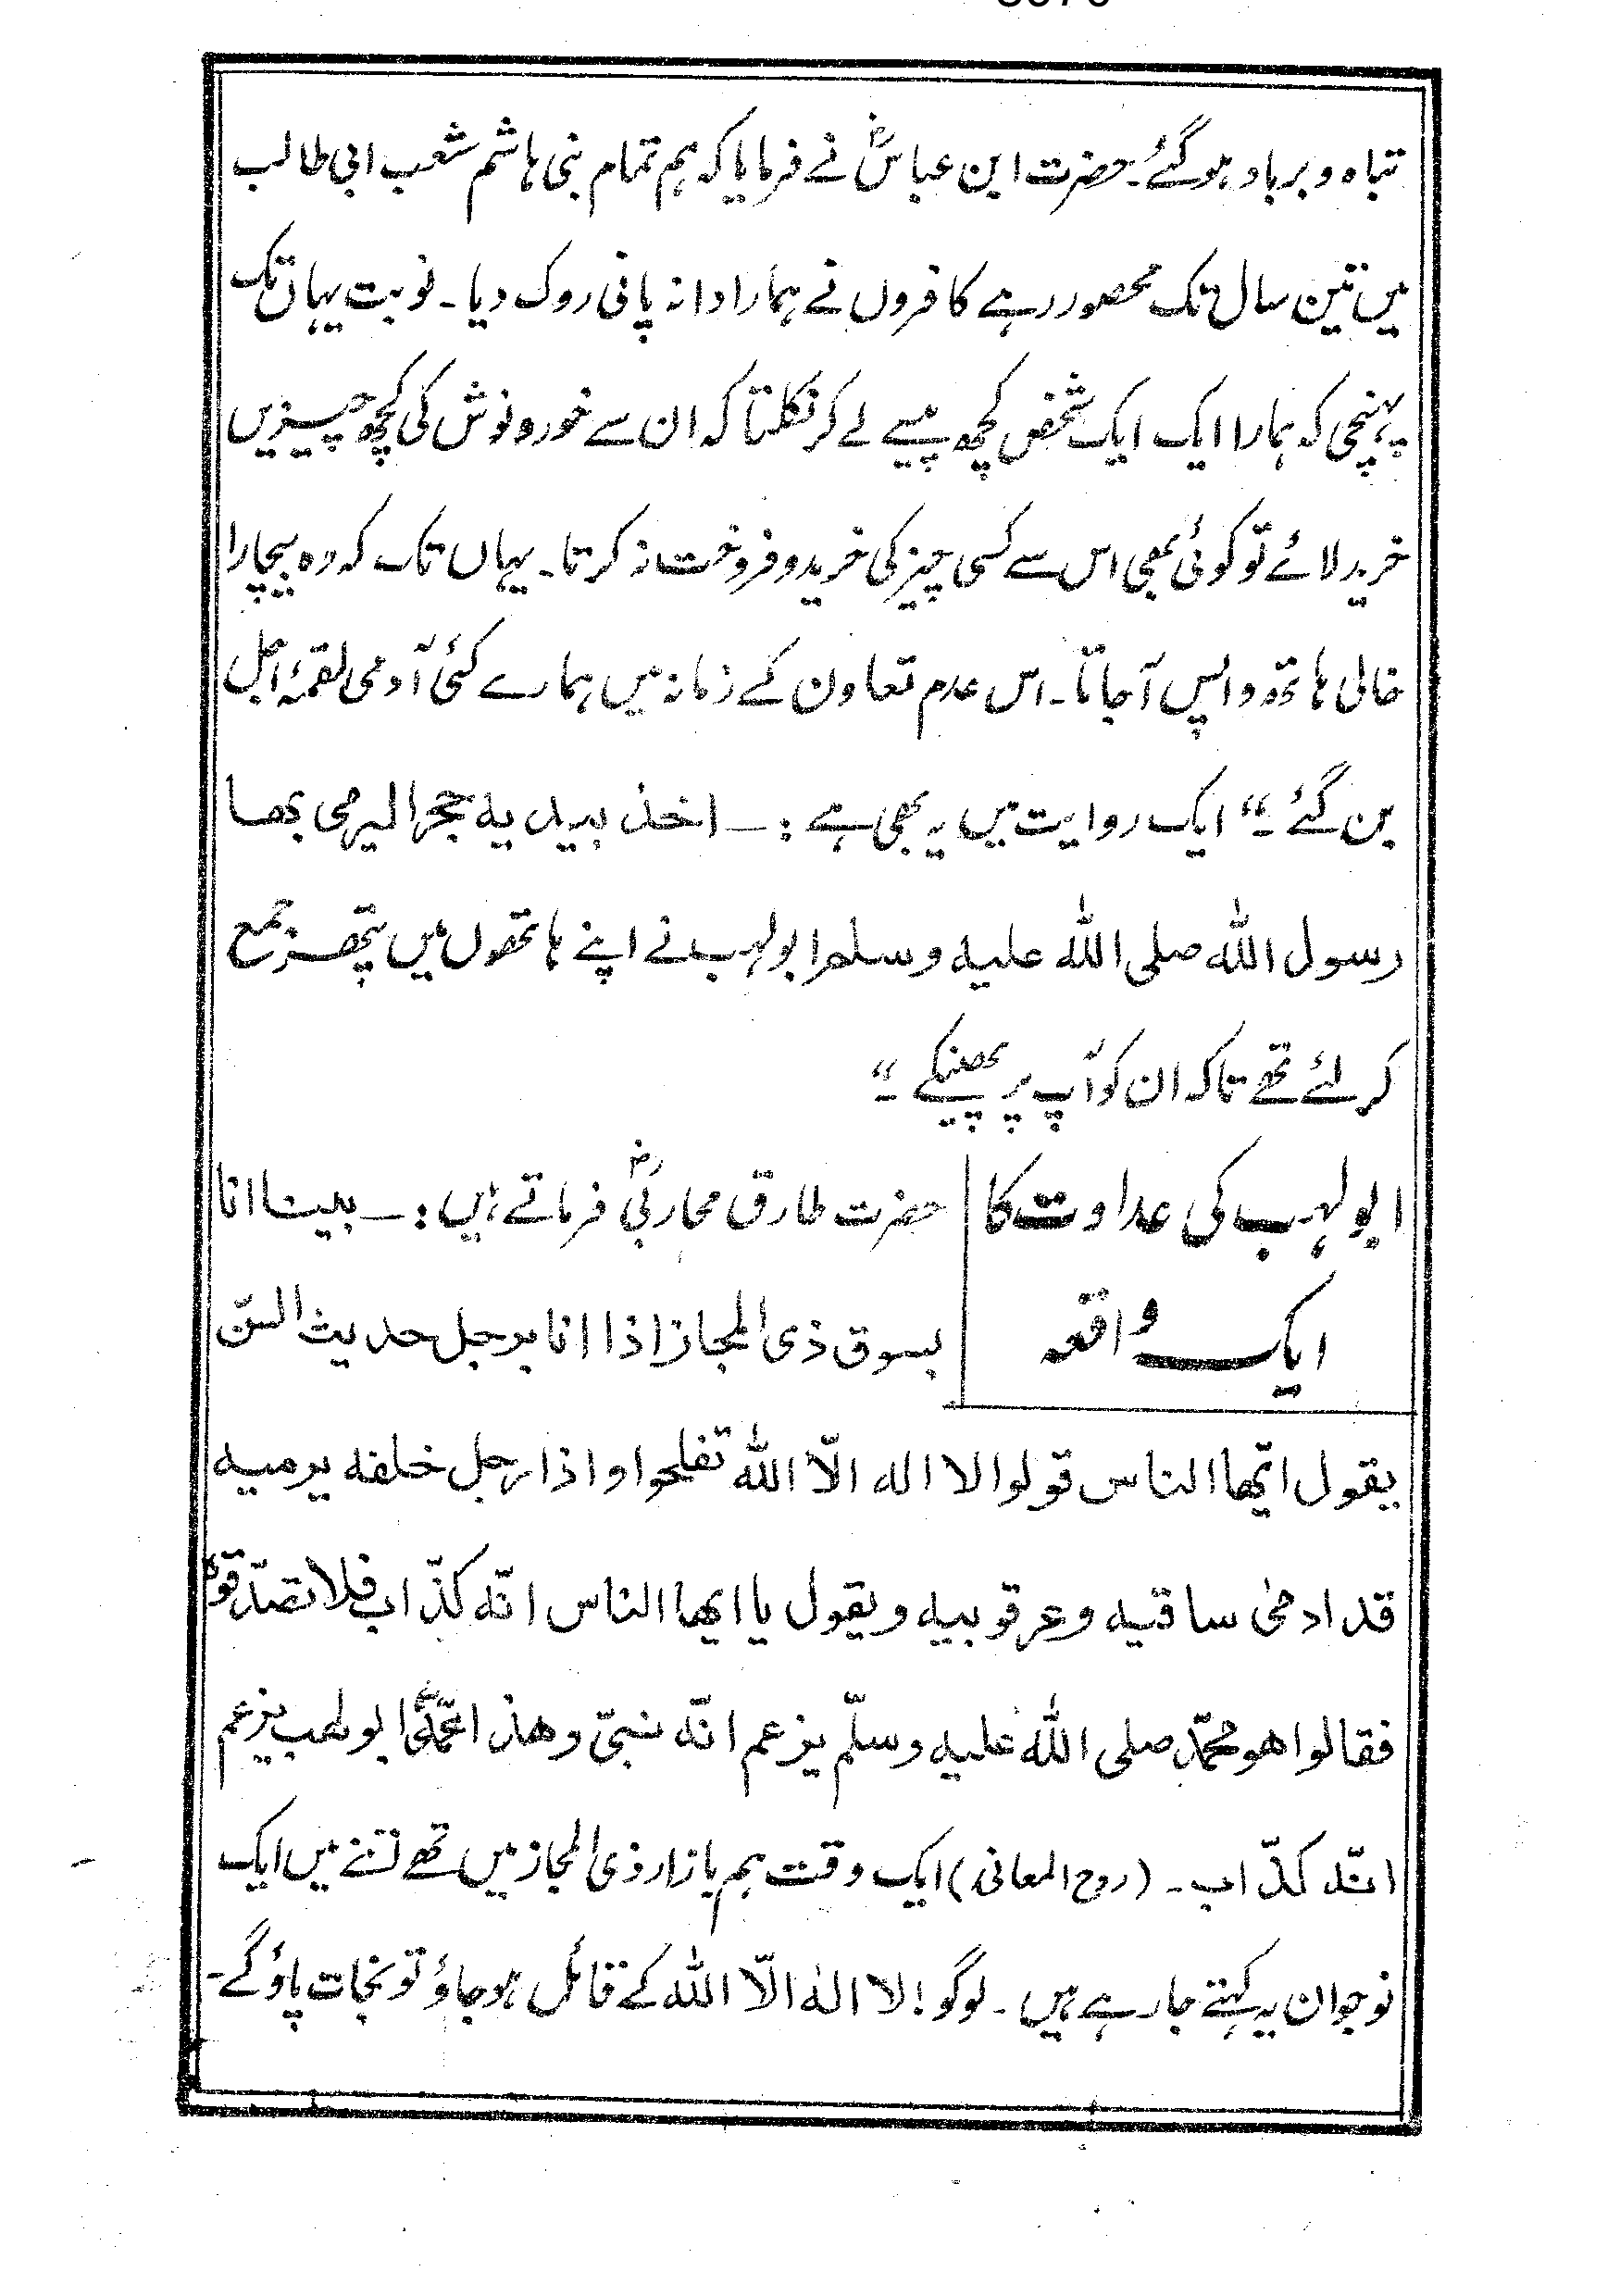 تباہ و برباد ہوگئے۔ حضرت ابن عباسؓ نے فرمایا کہ ہم تمام بنی ہاشم شعب ابی طالب
میں تین سال تک محصور رہے کافروں نے ہمارا دانہ پانی روک دیا۔ نوبت یہاں تک
پہنچی کہ ہمارا ایک ایک شخص کچھ پیسے لے کر نکلتا کہ ان سے خورونوش کی کچھ چیزیں
خرید لائے تو کوئی بھی اس سے کسی چیز کی خرید و فروخت نہ کرتا۔ یہاں تک کہ وہ بیچارا
خالی ہاتھ واپس آجاتا۔ اس عدم تعاون کے زمانہ میں ہمارے کئی آدمی لقمۂ اجل
بن گئے۔“ ایک روایت میں یہ بھی ہے :ـ اخذ بیدیه حجرا لیرمی بها
رسول الله صلی الله علیه وسلم ابولہب نے اپنے ہاتھوں میں پتھر جمع
کرلئے تھے تاکہ ان کو آپ پر پھینکے۔“
ابولہب کی عداوت کا
ایک واقعہ
حضرت طارق محاربیؓ فرماتے ہیں :ـ بینا انا
بسوق ذی المجاز اذا انا برجل حدیث السّن
یقول ایّها الناس قولوا لا اله الّا الله تفلحوا و اذا رجل خلفه یرمیه
قد ادمیٰ ساقیه و عرقوبیه و یقول یا ایها الناس انّه کذّاب فلا تصدّقوه
فقالوا هو محمّد صلی الله علیه وسلّم یزعم انّه نبیّ و هذا عمّه ابولهب یزعم
انّه کذّاب۔ (روح المعانی) ایک وقت ہم بازار ذی المجاز میں تھے اتنے میں ایک
نوجوان یہ کہتے جارہے ہیں۔ لوگو! لا الٰہ الّا اللہ کے قائل ہوجاؤ تو نجات پاؤگے۔